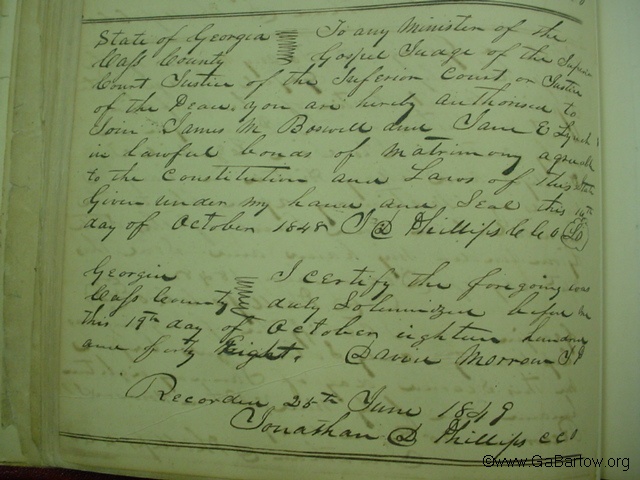 State of Georgia To any Minister of the
Cass County Gospel Judge of the Superior
Court Justice of the Inferior Court, or Justice
of the Peace. you are hereby authorised to
Join James M. Boswell and Jane E Lynch
in lawful bonds of Matrimony agreeable
to the Constitution and Laws of this state
Given under my hand and Seal this 16th
day of October 1848 J D Phillips C C O
Georgia I certify the foregoing was
Cass County duly Solemnized before me
this 19th day of October eighteen hundred
and forty Eight. David Morrow J P
Recorded 25th June 1849
Jonathan D Phillips CCO
©www.GaBartow.org